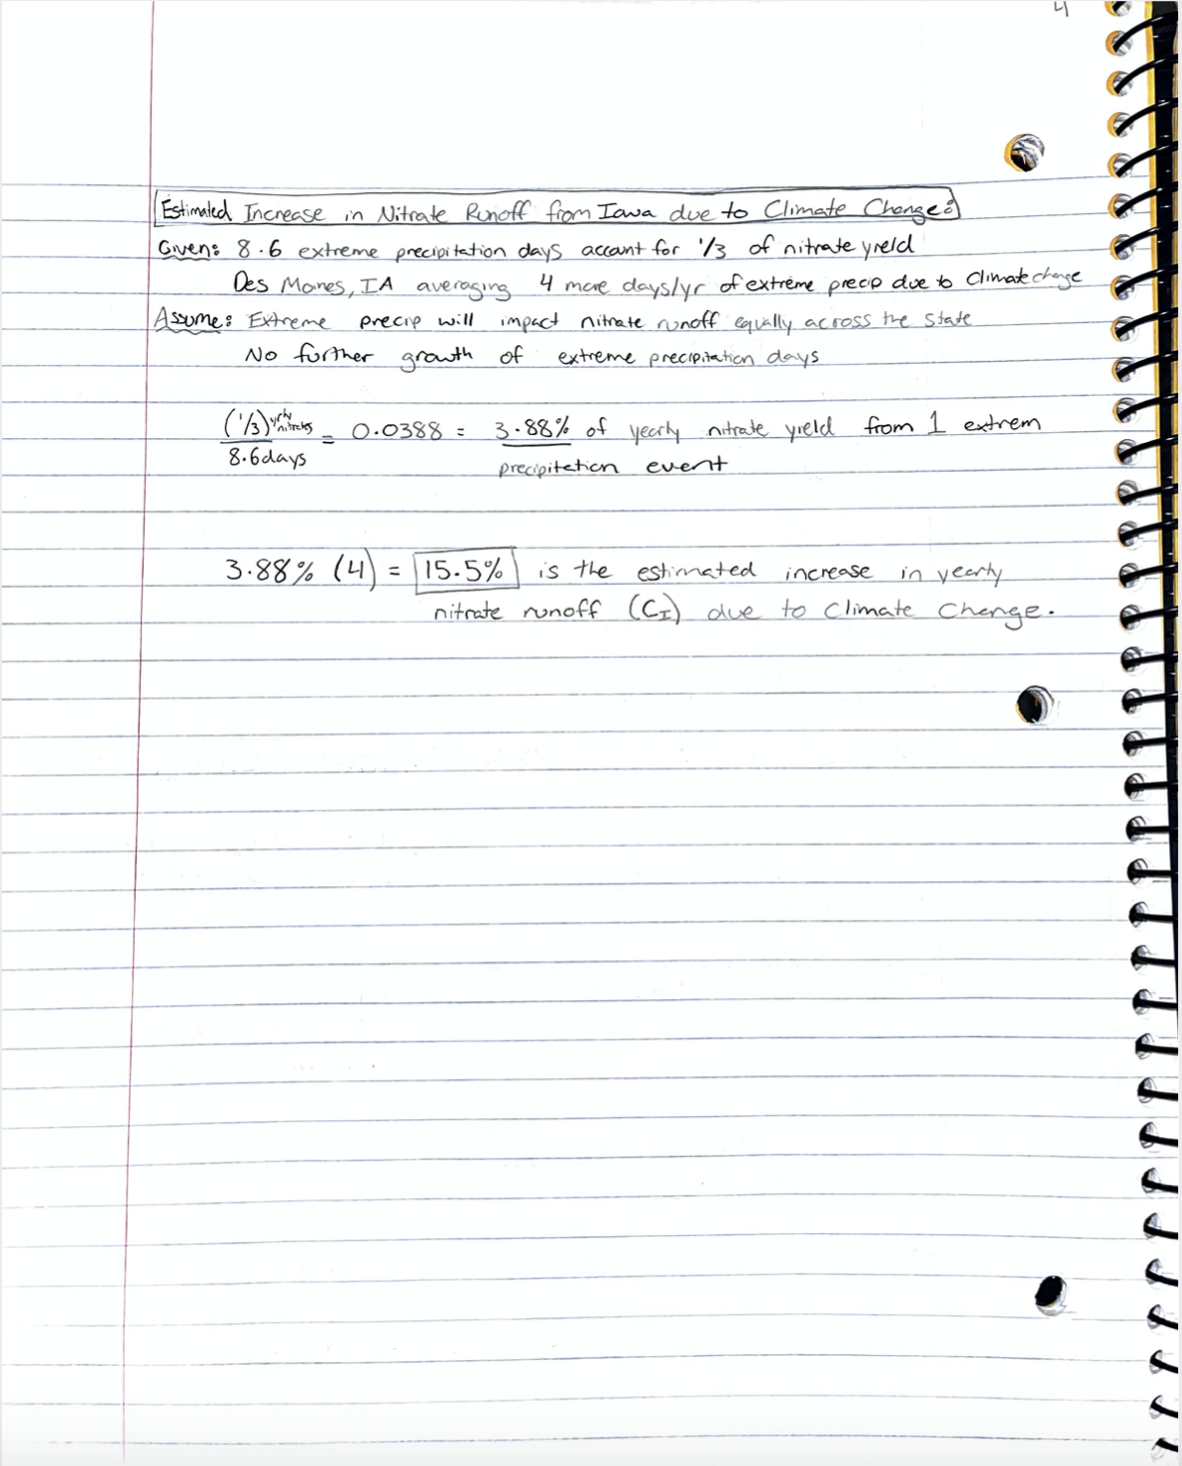 4
Estimated Increase in Nitrate Runoff from Iowa due to Climate Change:
Given: 8.6 extreme precipitation days account for 1/3 of nitrate yield
Des Moines, IA averaging 4 more days/yr of extreme precip due to Climate change
Assume: Extreme precip will impact nitrate runoff equally across the state
No further growth of extreme precipitation days
(1/3) yrly nitrates / 8.6 days = 0.0388 = 3.88% of yearly nitrate yield from 1 extrem
precipitation event
3.88% (4) = 15.5% is the estimated increase in yearly
nitrate runoff (C_I) due to Climate Change.